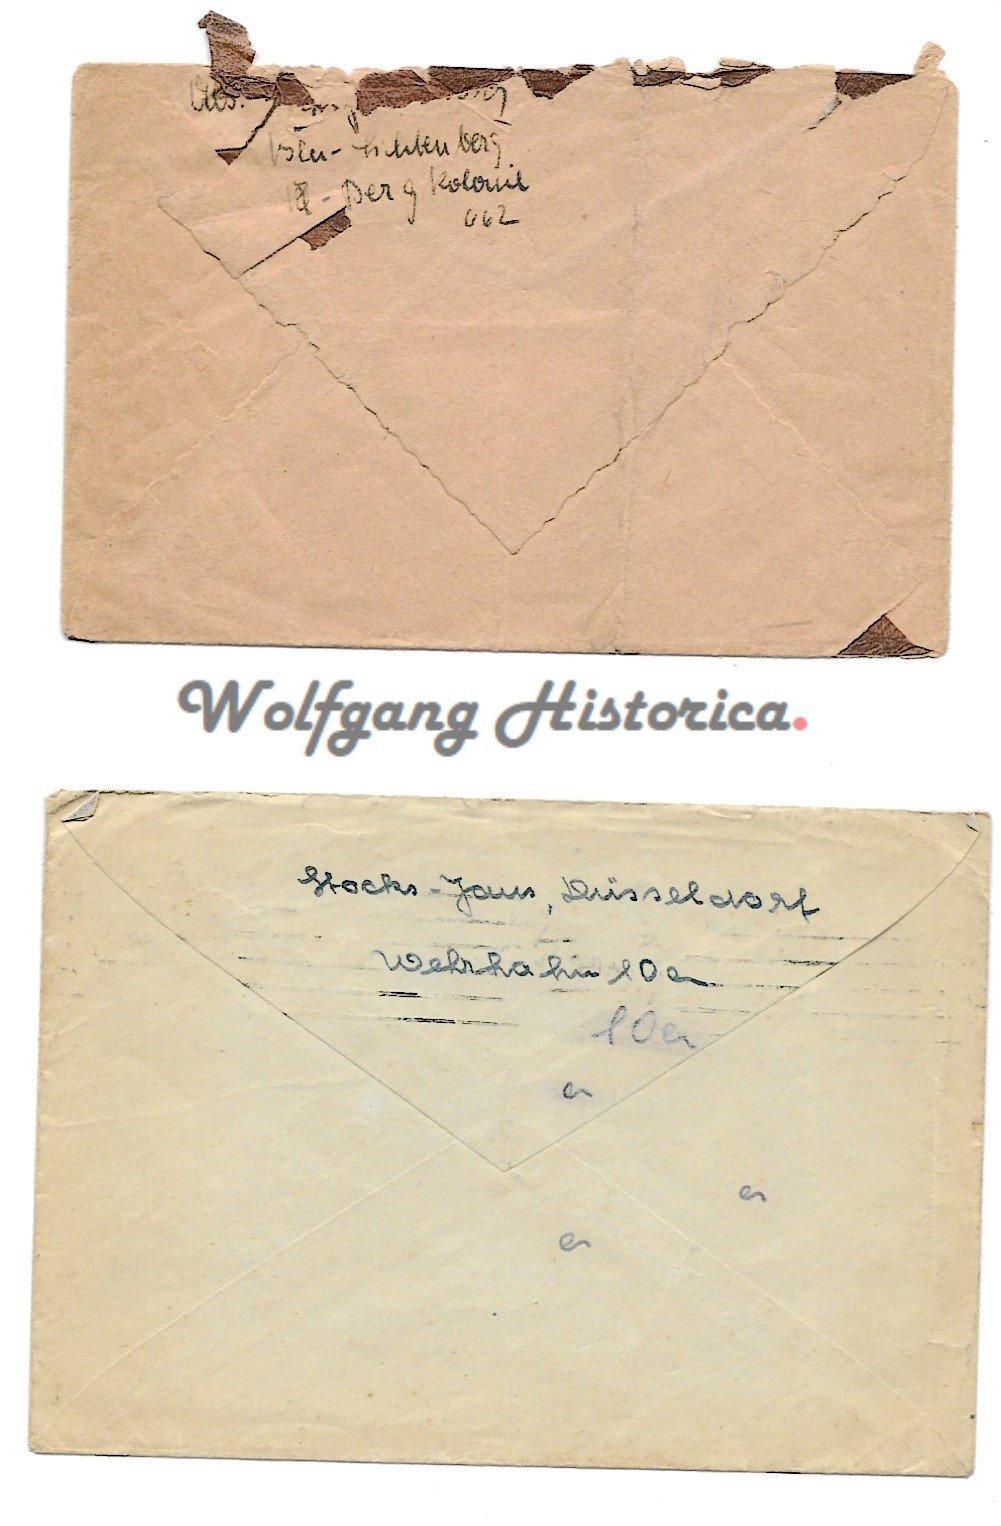 Abs.
Bln-Lichtenberg
Berg Kolonie
662
Wolfgang Historica.
Stocks-Jaus, Düsseldorf
Wehrhahn 10a
10a
a
a
a